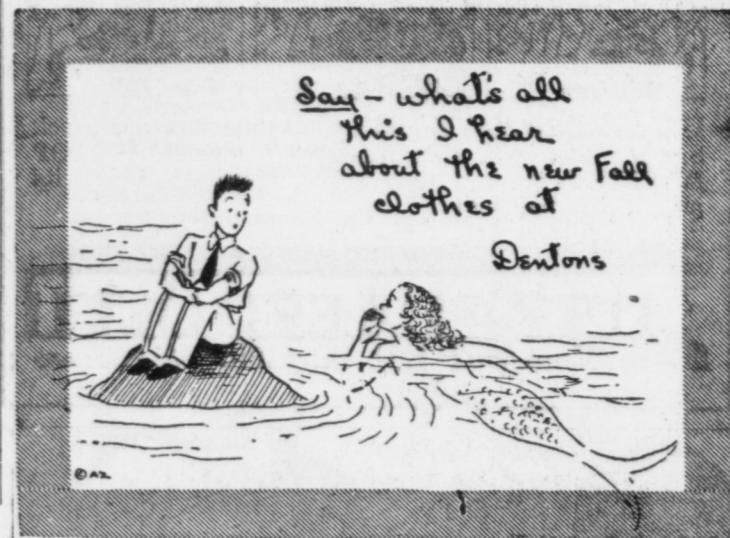 Say - what's all
this I hear
about the new Fall
clothes at
Dentons
© AZ